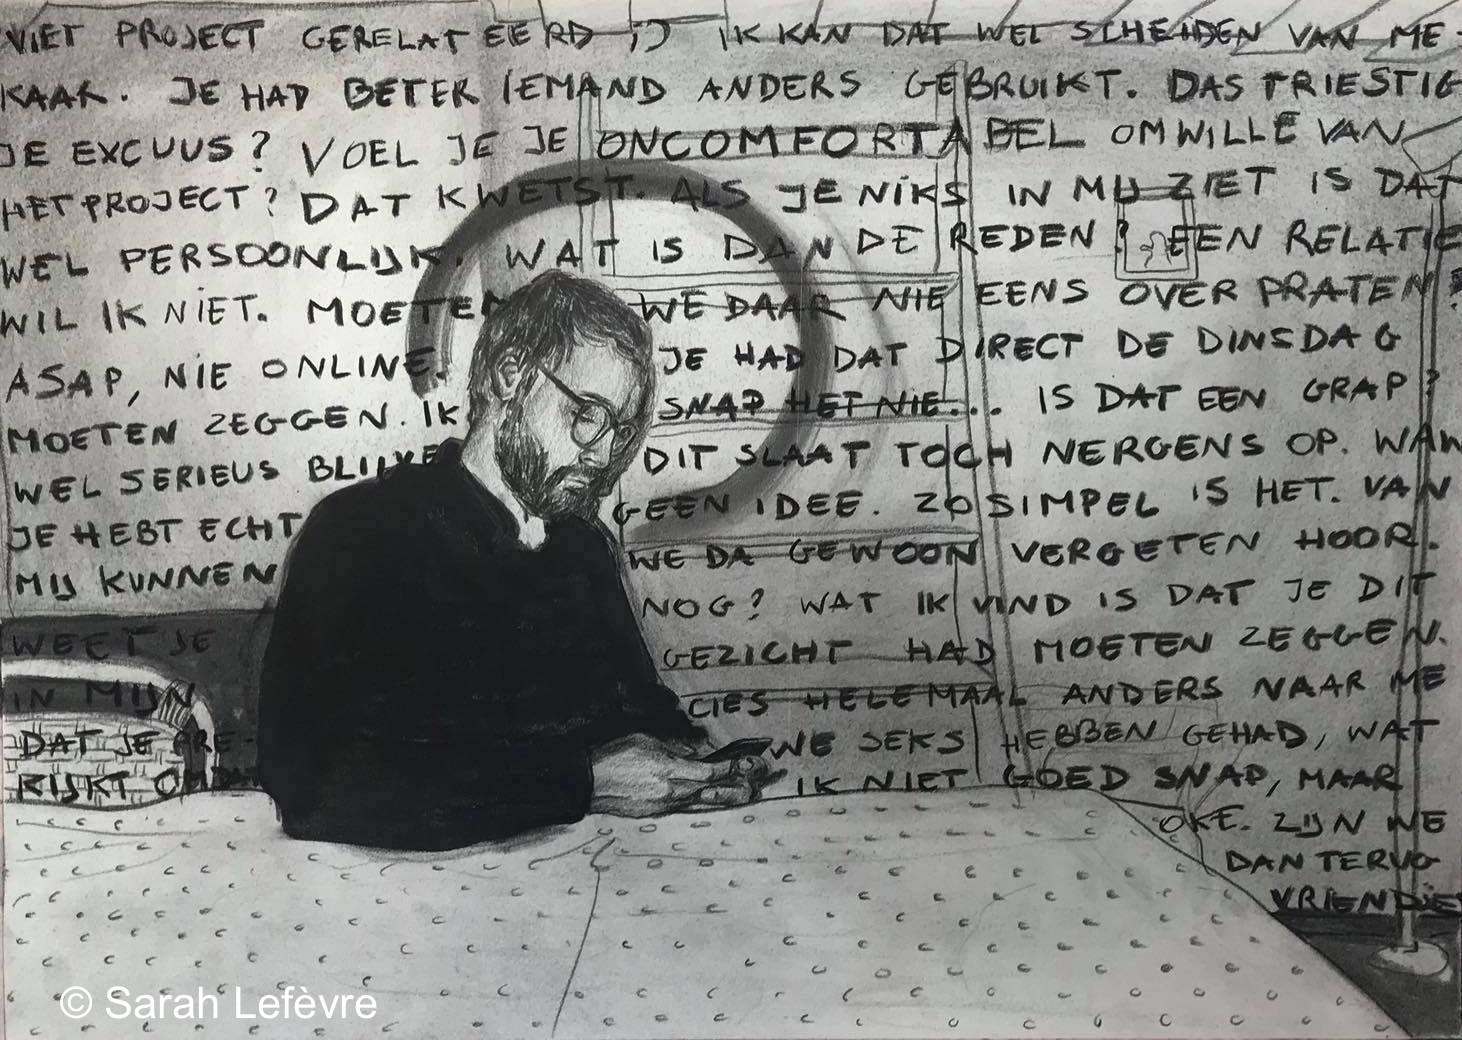 NIET PROJECT GERELATEERD ;) IK KAN DAT WEL SCHEIDEN VAN ME-
KAAR. JE HAD BETER IEMAND ANDERS GEBRUIKT. DAS TRIESTIG
JE EXCUUS? VOEL JE JE ONCOMFORTABEL OMWILLE VAN
HET PROJECT? DAT KWETST. ALS JE NIKS IN MIJ ZIET IS DAT
WEL PERSOONLIJK. WAT IS DAN DE REDEN? EEN RELATIE
WIL IK NIET. MOETEN WE DAAR NIE EENS OVER PRATEN?
ASAP, NIE ONLINE. JE HAD DAT DIRECT DE DINSDAG
MOETEN ZEGGEN. IK SNAP HET NIE... IS DAT EEN GRAP?
WEL SERIEUS BLIJVE DIT SLAAT TOCH NERGENS OP. WAN
JE HEBT ECHT GEEN IDEE. ZO SIMPEL IS HET. VAN
MIJ KUNNEN WE DA GEWOON VERGETEN HOOR.
WEET JE NOG? WAT IK VIND IS DAT JE DIT
IN MIJN GEZICHT HAD MOETEN ZEGGEN.
DAT JE PRE- CIES HELEMAAL ANDERS NAAR ME
KIJKT OMDAT WE SEKS HEBBEN GEHAD, WAT
IK NIET GOED SNAP, MAAR
OKE. ZIJN WE
DAN TERUG
VRIENDJE
© Sarah Lefèvre